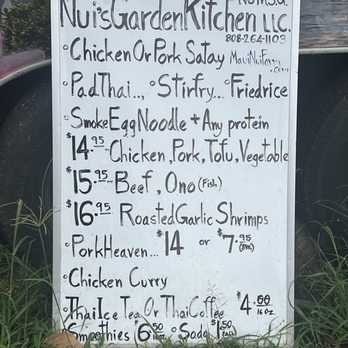 Nui'sGardenKitchen LLC.
808-264-1103
°Chicken Or Pork Satay
°PadThai..., °Stirfry... °Friedrice
°SmokeEggNoodle + Any protein
$14.95 Chicken, Pork, Tofu, Vegetable
$15.95 Beef, Ono (Fish)
$16.95 RoastedGarlic Shrimps
°PorkHeaven... $14 or $7.95 (sm)
°Chicken Curry
°ThaiIce Tea Or ThaiCoffee $4.00 16oz
°Smoothies $6.50 °Soda $1.50